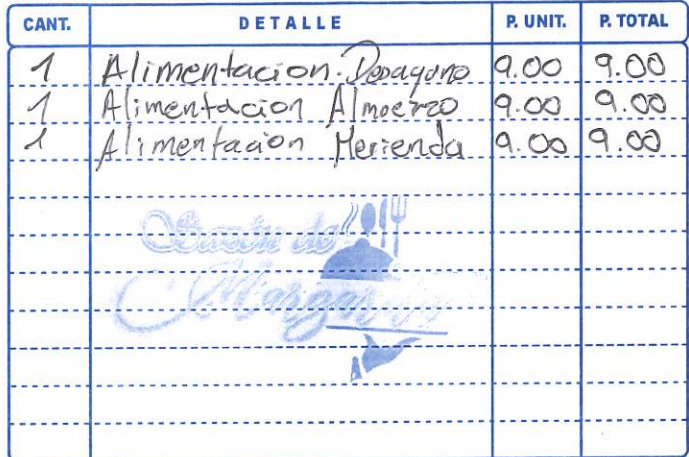 CANT. DETALLE P. UNIT. P. TOTAL
1 Alimentacion. Desayuno 9.00 9.00
1 Alimentacion Almuerzo 9.00 9.00
1 Alimentacion Merienda 9.00 9.00
Sazón de
Margarita